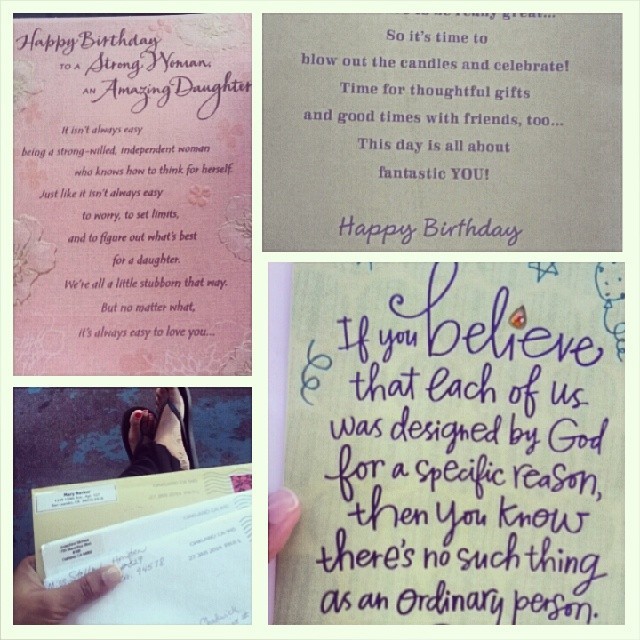 Happy Birthday
TO A Strong Woman,
AN Amazing Daughter
It isn't always easy
being a strong-willed, independent woman
who knows how to think for herself.
Just like it isn't always easy
to worry, to set limits,
and to figure out what's best
for a daughter.
We're all a little stubborn that way.
But no matter what,
it's always easy to love you...
to be really great...
So it's time to
blow out the candles and celebrate!
Time for thoughtful gifts
and good times with friends, too...
This day is all about
fantastic YOU!
Happy Birthday
If you believe
that each of us
was designed by God
for a specific reason,
then you know
there's no such thing
as an ordinary person.